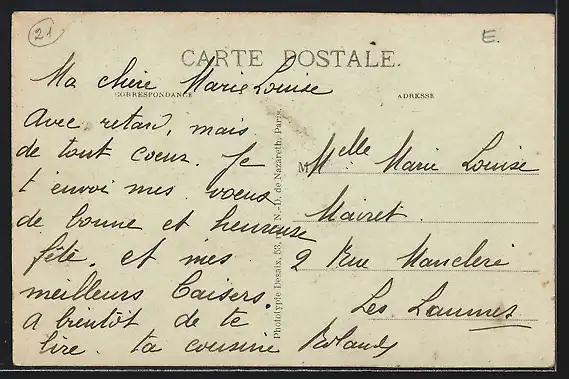 21
E.
CARTE POSTALE.
CORRESPONDANCE
ADRESSE
Ma chère Marie Louise
Avec retard, mais
de tout coeur. Je
t'envoi mes voeux
de bonne et heureuse
fête. et mes
meilleurs baisers.
A bientôt de te
lire. ta cousine
Phototypie Desaix, 53, r. N.-D. de Nazareth, Paris.
Melle Marie Louise
Mairet
2 Rue Manclere
Les Laumes